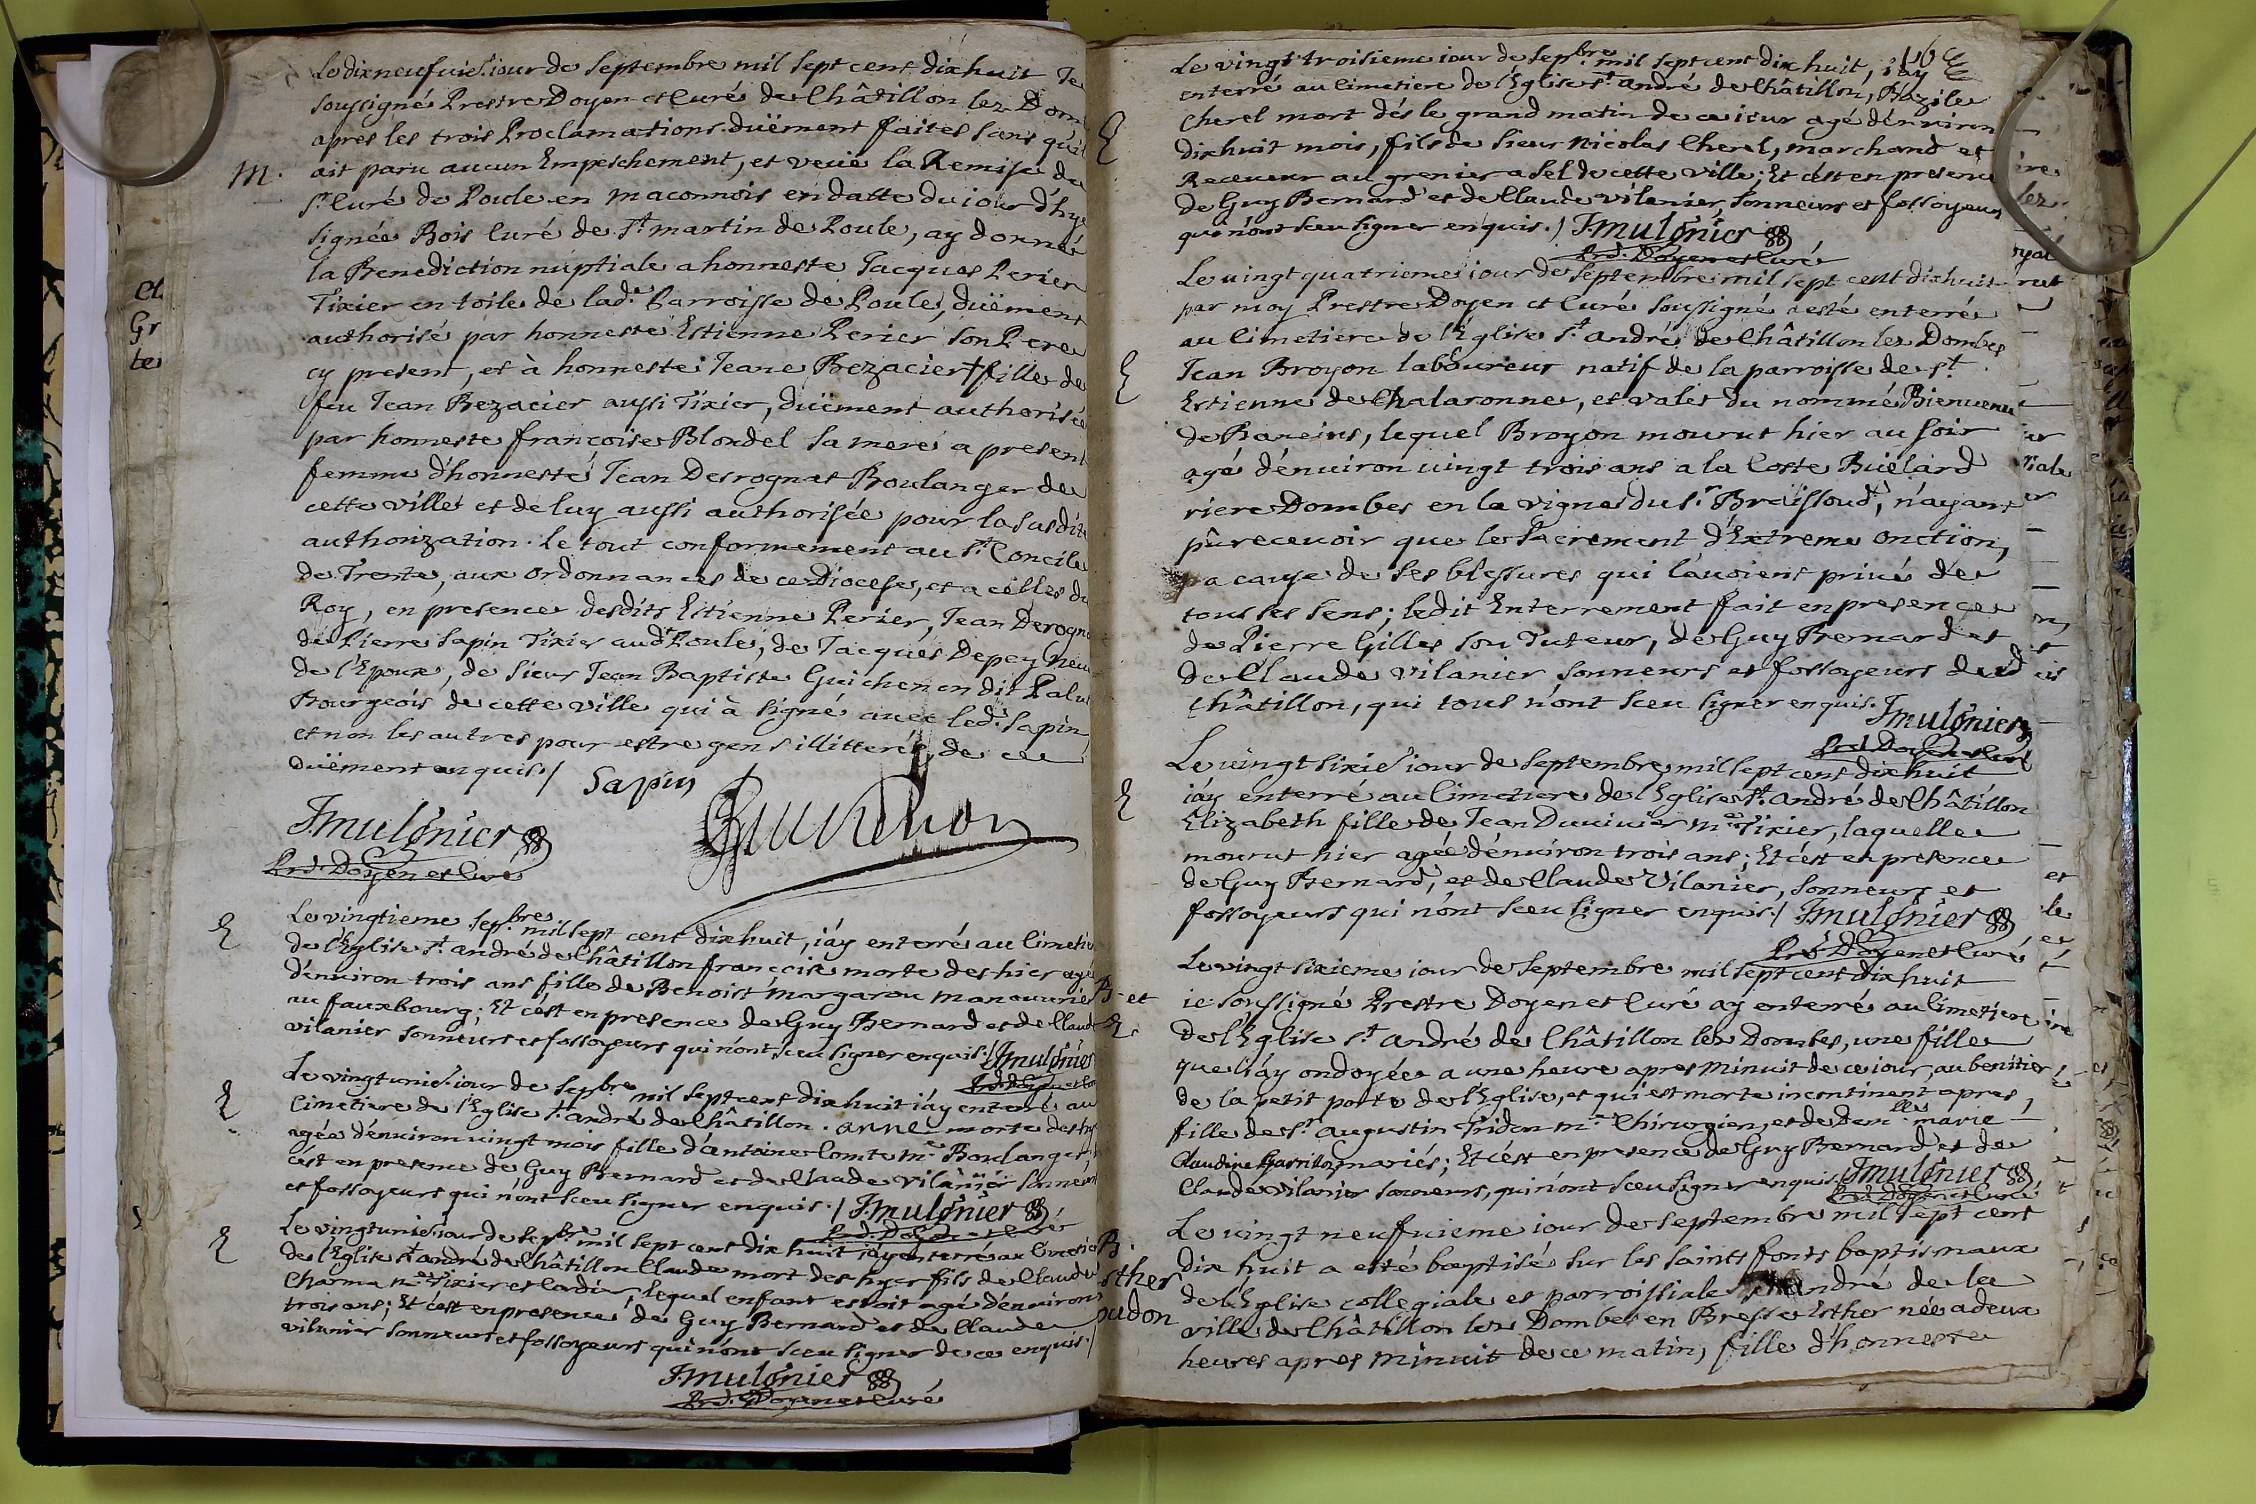 Le dixneufuie. iour de Septembre mil sept cent dixhuit Je
soussigné Prestre Doyen et Curé de Châtillon lez Dom
apres les trois Proclamations duëment faites sans qu'il
M.
ait paru aucun Empeschement, et veüe la Remise de
Sr Curé de Poule en maconnois en datte du iour d'hy
signée Bois Curé de St martin de Poule, ay donné
la Benediction nuptiale a honneste Jacques Perier
Tixier en toile de lade. Parroisse de Poule, duëment
authorisé par honneste Estienne Perier son Pere
cy present, et à honneste Jeane Bezacier + fille de
feu Jean Bezacier aussi Tixier, duëment authorisée
par honneste françoise Blondel sa mere a present
femme d'honneste Jean Desrognat Boulanger de
cette ville et de luy aussi authorisée pour la susdite
authorization. le tout conformement au St Concile
de Trente, aux ordonnances de ce Diocese, et a celles du
Roy, en presence desdits Estienne Perier, Jean Derogna
de Pierre Sapin Tixier aud. Poule, de Jacques Depey neu
de l'Epoux, de Sieur Jean Baptiste Guichenon dit Palu
Bourgeois de cette ville qui à signé avec led. Sapin,
et non les autres pour estre gens illitterés, de ce
duëment enquis./ Sapin
Guichenon
J. mulonier
Prd. Doyen et Curé
E
Le vingtieme Sepbre. mil sept cent dixhuit, i'ay enterré au Cimetie
de l'Eglise St andré de Châtillon françoise morte des hier agée
d'enuiron trois ans fille de Benoist margarou manouvrier
au fauxbourg; Et c'est en presence de Guy Bernard et de Claude
vilanier sonneurs et fossoyeurs qui n'ont sceu signer enquis./ J. mulonier
Prd. Doyen et Cu
E
Le vingtunie. iour de Sepbre mil sept cent dixhuit i'ay enterré au
Cimetiere de l'Eglise St andré de Châtillon. anne morte des hy
agée d'enuiron vingt mois fille d'antoine Comte Me Boulanger
c'est en presence de Guy Bernard et de Claude vilanier sonneurs
et fossoyeurs qui n'ont sceu signer enquis./ J. mulonier
Prd. Doyen et Curé
E
Le vingtunie. iour de Sepbre mil sept cent dix huit i'ay enterré au Cimetie
de l'Eglise St andré de Châtillon Claude mort des hyer fils de Claude
Charma me Tixier et Cordier, lequel enfant estoit agé d'enuiron
trois ans; Et c'est en presence de Guy Bernard et de Claude
vilanier sonneurs et fossoyeurs qui n'ont sceu signer de ce enquis./
J. mulonier
Prd. Doyen et Curé
Le vingt troisieme iour de Sepbre. mil sept cent dix huit, i'ay
E
enterré au Cimetiere de l'Eglise St andré de Châtillon, Bazile
Cherel mort dés le grand matin de ce iour agé d'enuiron
dixhuit mois, fils de Sieur Nicolas Cherel, marchand et
Receueur au grenier a sel de cette ville; Et c'est en presence
de Guy Bernard et de Claude vilanier, sonneurs et fossoyeurs
qui n'ont sceu signer enquis./ J. mulonier
Prd. Doyen et Curé
Le vingt quatrieme iour de Septembre mil sept cent dixhuit
par moy Prestre Doyen et Curé soussigné a esté enterré
au Cimetiere de l'Eglise St. andré de Châtillon lez Dombes
E
Jean Broyon laboureur natif de la parroisse de St.
Estienne de Chalaronne, et valet du nommé Bienuenu
de Baneins, lequel Broyon mourut hier au soir
agé d'enuiron vingt trois ans a la Coste Buëlard
riere Dombes en la vigne du Sr. Braissoud, n'ayant
pû receuoir que le Sacrement d'Extreme Onction,
a cause de ses blessures qui l'auoient priué de
tous ses sens; ledit Enterrement fait en presence
de Pierre Gilles son Tuteur, de Guy Bernard et
de Claude vilanier sonneurs et fossoyeurs dud
Châtillon, qui tous n'ont sceu signer enquis.
J. mulonier
Prd. Doyen et Curé
Le vingt sixie. iour de Septembre mil sept cent dixhuit
E
i'ay enterré au Cimetiere de l'Eglise St. andré de Châtillon
Elizabeth fille de Jean Duuiuier me Tixier, laquelle
mourut hier agée d'enuiron trois ans; Et c'est en presence
de Guy Bernard, et de Claude Vilanier, sonneurs et
fossoyeurs qui n'ont sceu signer enquis./ J. mulonier
Prd. Doyen et Curé
Le vingt sixieme iour de Septembre mil sept cent dixhuit
B. et
E.
ie soussigné Prestre Doyen et Curé ay enterré au Cimetiere
de l'Eglise St andré de Châtillon lez Dombes, une fille
que i'ay ondoyée a une heure apres minuit de ce iour, au benitier
de la petit porte de l'Eglise, et qui est morte incontinent apres,
fille de Sr. augustin Tridon me Chirurgien, et de Demlle marie
Claudine Garriton mariés; Et c'est en presence de Guy Bernard et de
Claude Vilanier sonneurs, qui n'ont sceu signer enquis. J. mulonier
Prd. Doyen et Curé
Le vingt neufuieme iour de Septembre mil sept cent
B.
sther
oudon
dix huit a esté baptisé sur les saints fonts baptismaux
de l'Eglise collegiale et parroissiale St andré de la
ville de Châtillon lez Dombes en Bresse Esther née a deux
heures apres minuit de ce matin, fille d'honneste